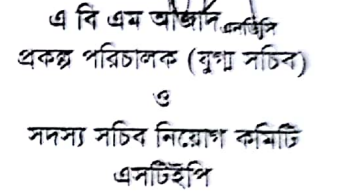 এ বি এম আজাদ এনডিসি
প্রকল্প পরিচালক (যুগ্ম সচিব)
ও
সদস্য সচিব নিয়োগ কমিটি
এসটিইপি